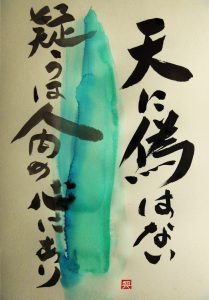 天に偽はない
疑うは人间の心にあり